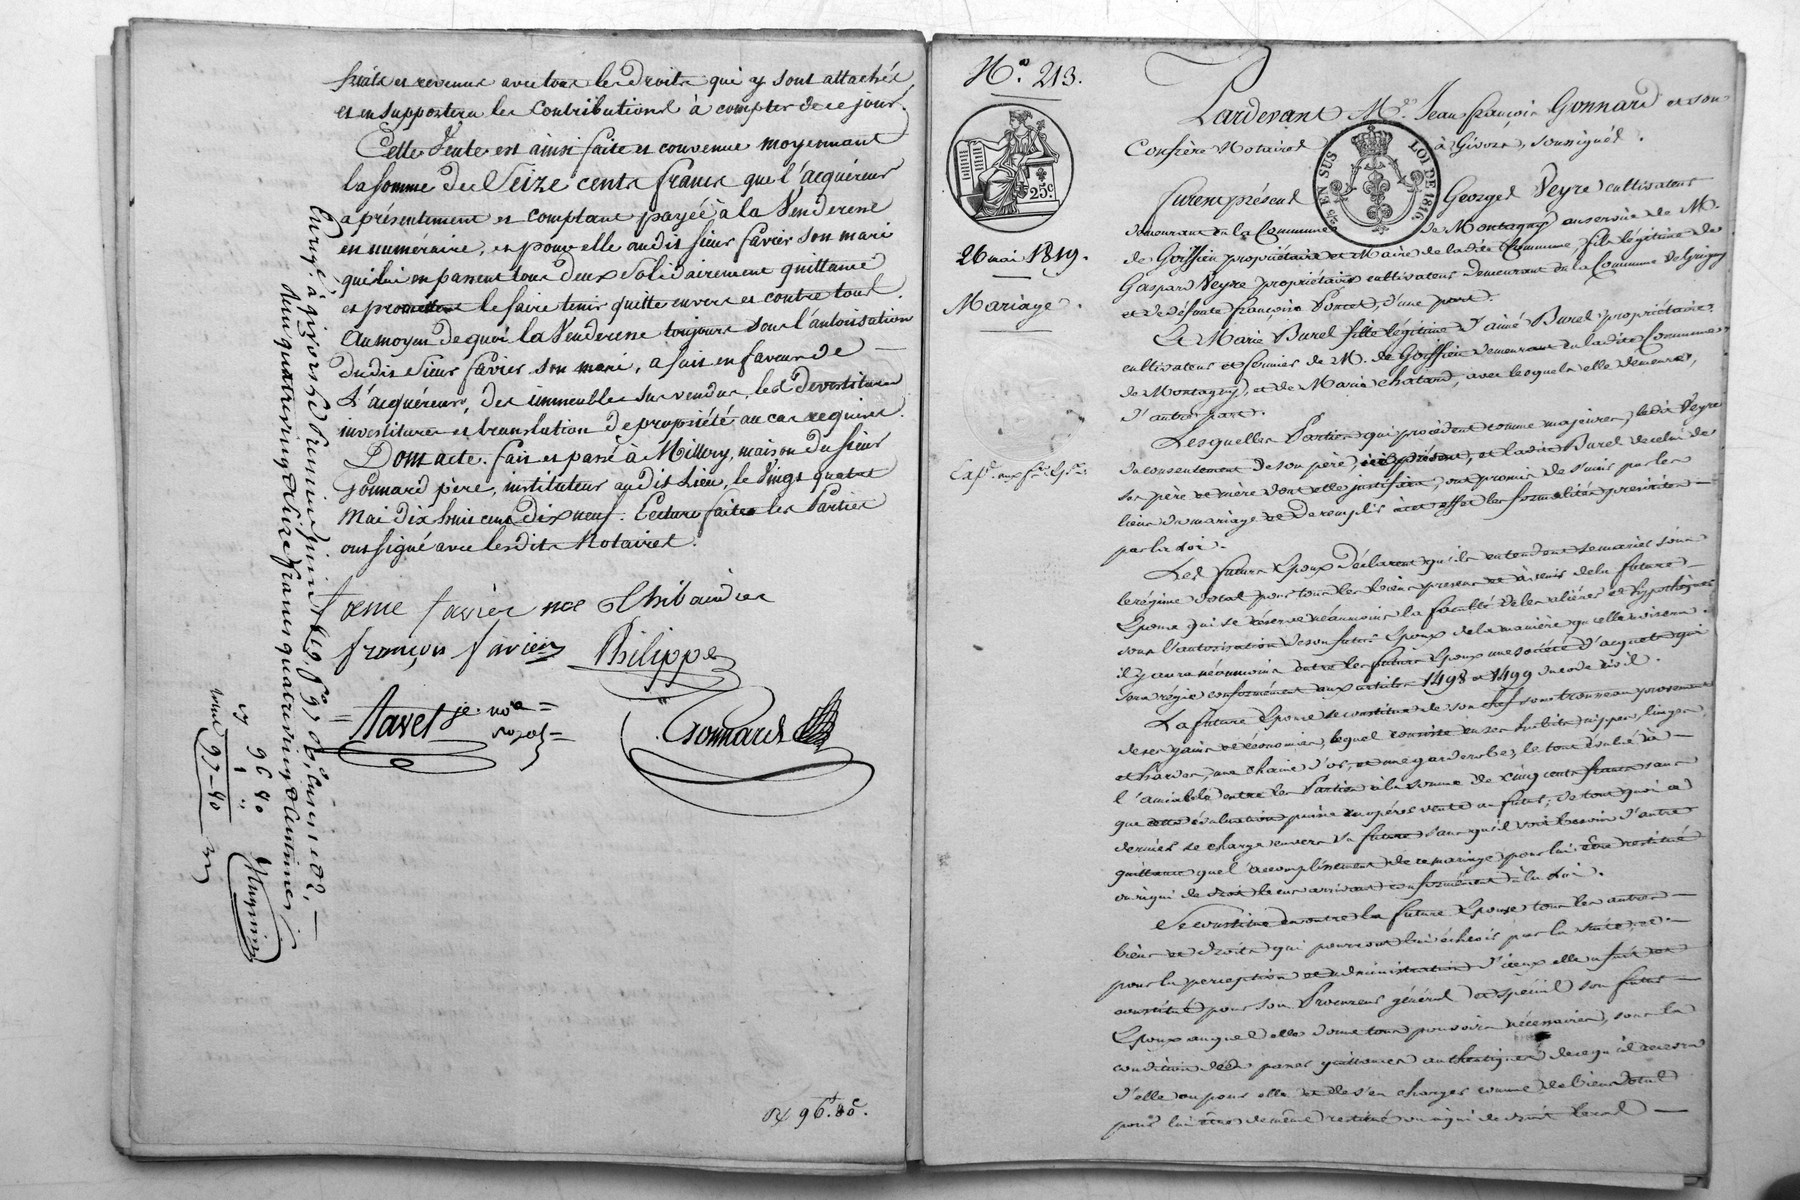 fruits et revenus avec tous les droits qui y sont attachés
et en supportera les Contributions à compter de ce jour.
Cette Vente est ainsi faite et convenue moyennant
la somme de Seize cents francs que l'acquéreur
a présentement et comptant payée à la Venderesse
en numéraire, et pour elle audit sieur favier son mari
qui lui en passent tous deux solidairement quittance
et promettent le faire tenir quitte envers et contre tous.
Au moyen de quoi la Venderesse toujours sous l'autorisation
dudit sieur favier son mari, a fait en faveur de
L'acquéreur, des immeubles sus vendus, les devestitures
investitures et translation de propriété au cas requises.
Dont acte. fait et passé à Millery, maison du sieur
Gonnard père, instituteur audit Lieu, le Vingt quatre
Mai dix huit cent dix neuf. Lecture faite les Parties
ont signé avec lesdits Notaires.
favier née Thibaudier
françois favier Philippe
Favel je. nore
royal Gonnard
Enregé. à givors le Premier juin 1819, fo 97
reçu quatre vingt Seize francs quatre vingts Centimes
96 80
97-90
96f. 80c.
No. 213.
25c
25c EN SUS LOI DE 1816
26 mai 1819.
Mariage.
Pardevant Me. Jean françois Gonnard et son
Confrère Notaires à Givors, soussignés.
furent présents Georges Veyre cultivateur
demeurant en la Commune de Montagny au service de M.
de Goiffieu propriétaire et Maire de ladite Commune fils légitime de
Gaspard Veyre propriétaire cultivateur demeurant en la Commune de Grigny
et de défunte françoise Poncet, d'une part.
Et Marie Burel fille légitime d'aimé Burel propriétaire
cultivateur et fermier de M. de Goiffieu demeurant en ladite Commune
de Montagny, et de Marie Chatard, avec lesquels elle demeure,
d'autre part.
Lesquelles Parties qui procèdent comme majeures, ledit Veyre
du consentement de son père, ici présent, et ladite Burel de celui de
ses père et mère dont elle justifiera, ont promis de s'unir par les
liens du mariage et de remplir à cet effet les formalités prescrites
par la Loi.
Les futurs Epoux déclarent qu'ils entendent se marier sous
le régime dotal pour tous les biens présens et à venir de la future
Epouse qui se réserve néanmoins la faculté de les aliéner et hypothéquer
sous l'autorisation de son futur Epoux de la manière qu'elle avisera.
il y aura néanmoins entre les futurs Epoux une société d'acquets qui
sera régie conformément aux articles 1498 et 1499 du code civil.
La future Epouse se constitue de son chef son trousseau provenant
de ses gains et économies, lequel consiste en ses habits, nippes, linges,
et hardes, une chaine d'or, et une garderobe, le tout évalué à
l'amiable entre les Parties à la somme de cinq cents francs sans
que cette évaluation puisse en opérer vente au futur; de tout quoi ce
dernier se charge envers la future sans qu'il soit besoin d'autre
quittance que l'accomplissement de ce mariage pour lui être restitué
ou à qui de droit le cas arrivant conformément à la Loi.
Se constitue en outre la future Epouse tous les autres
biens et droits qui pourront lui échoir par la suite, et
pour la perception et administration d'iceux elle a fait et
constitué pour son Procureur général et spécial son futur
Epoux auquel elle donne tous pouvoirs nécessaires, sous la
condition de passer quittances authentiques de ce qu'il recevra
d'elle ou pour elle et de s'en charger comme de bien dotal
pour lui être de même restitué ou à qui de droit le cas